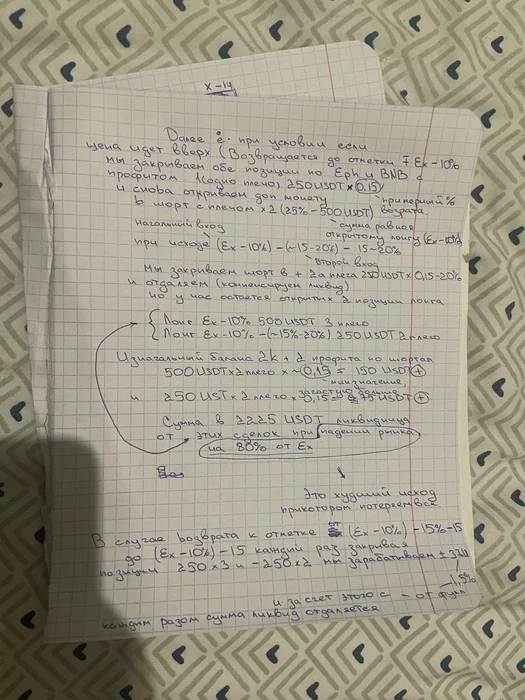 X-14
Далее ё. при условии если
цена идет вверх (Возвращается до отметки Ex-10%
мы закрываем обе позиции по Eph и BNB с
профитом 1 (одно плечо) 250 USDT × 0.15
и снова открываем доп монету
примерный %
возрата
в шорт с плечом ×2 (25% - 500 USDT)
начальный вход
сумма равная
открытому лонгу (Ex-10%)
при исходе (Ex-10%) - (~15-20%) - 15-20%
второй вход
Мы закрываем шорт в + 2а плеча 250 USDT × 0,15-20%
и отдаляем (компенсируем ликвид)
но у нас остается открытых 2 позиции лонга
Лонг Ex-10% 500 USDT 3 плечо
Лонг Ex-10% - (~15%-20%) 250 USDT 2 плечо
Изначальный баланс 2k + 2 профита по шортам
500 USDT × 2 плечо × ~0,15 = 150 USDT +
минзначение,
зачастую больше
и 250 UST × 2 плечо × 0,15 = 75 USDT +
Сумма в 2225 USDT ликвидница
от этих сделок при падении рынка
на 80% от Ex
Это худший исход
при котором потеряем все
В случае возврата к отметке от (Ex-10%) -15%-15
до (Ex-10%) -15 каждый раз закрывая
позиции 250×3 и -250×2 мы зарабатываем ±
1,5%
и за счет этого с - от фулл
каждым разом сумма ликвид отдаляется